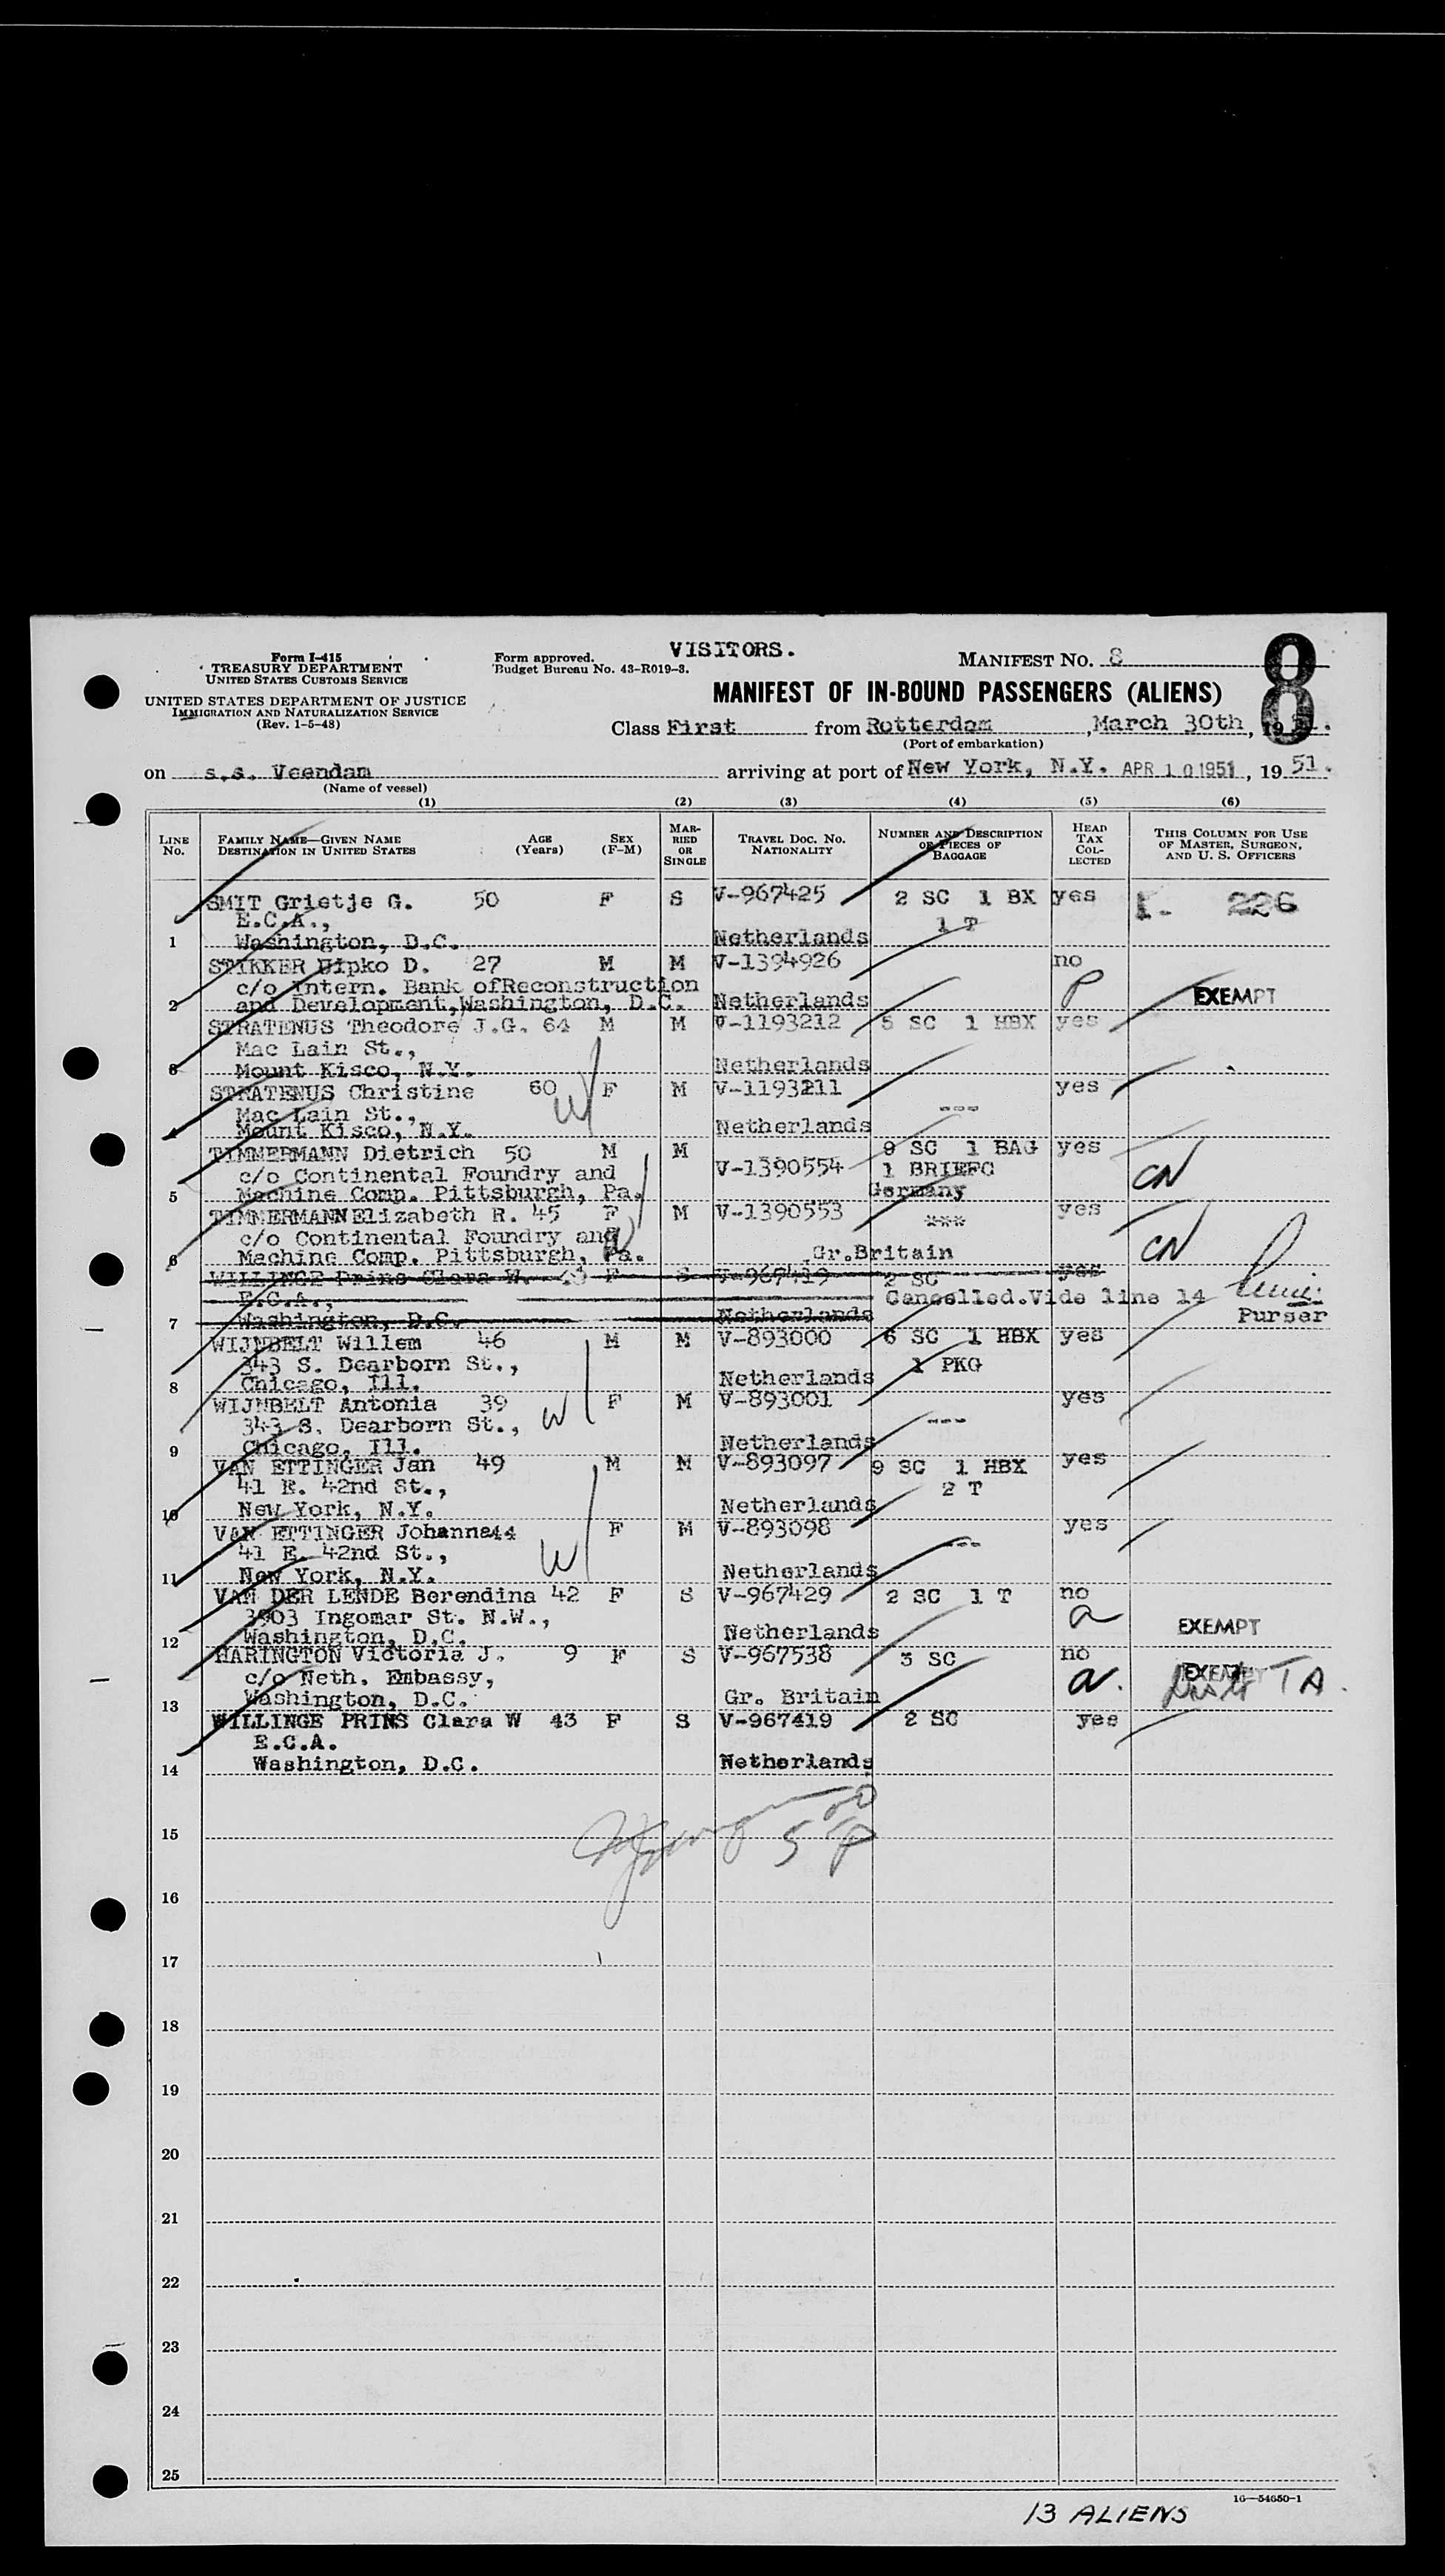 Form I-415
TREASURY DEPARTMENT
UNITED STATES CUSTOMS SERVICE
UNITED STATES DEPARTMENT OF JUSTICE
IMMIGRATION AND NATURALIZATION SERVICE
(Rev. 1-5-48)
Form approved.
Budget Bureau No. 43-R019-3.
VISITORS.
MANIFEST NO. 8
8
MANIFEST OF IN-BOUND PASSENGERS (ALIENS)
Class First from Rotterdam, March 30th, 19
(Port of embarkation)
on s.s. Veendam arriving at port of New York, N.Y. APR 10 1951, 19 51.
(Name of vessel)
(1) (2) (3) (4) (5) (6)
LINE No. FAMILY NAME—GIVEN NAME DESTINATION IN UNITED STATES AGE (Years) SEX (F-M) MARRIED OR SINGLE TRAVEL DOC. NO. NATIONALITY NUMBER AND DESCRIPTION OF PIECES OF BAGGAGE HEAD TAX COLLECTED THIS COLUMN FOR USE OF MASTER, SURGEON, AND U. S. OFFICERS
SMIT Grietje G. 50 F S V-967425 2 SC 1 BX yes I- 226
E.C.A., 1 T
1 Washington, D.C. Netherlands
STIKKER Uipko D. 27 M M V-1394926 no
c/o Intern. Bank ofReconstruction P
2 and Development,Washington, D.C. Netherlands EXEMPT
STRATENUS Theodore J.G. 64 M M V-1193212 5 SC 1 HBX yes
Mac Lain St.,
3 Mount Kisco, N.Y. Netherlands
STRATENUS Christine 60 F M V-1193211 yes
Mac Lain St., W ---
4 Mount Kisco, N.Y. Netherlands
TIMMERMANN Dietrich 50 M M 9 SC 1 BAG yes
c/o Continental Foundry and V-1390554 1 BRIEFC CN
5 Machine Comp. Pittsburgh, Pa. Germany
TIMMERMANN Elizabeth R. 45 F M V-1390553 *** yes
c/o Continental Foundry and W CN
6 Machine Comp. Pittsburgh, Pa. Gr.Britain
WILLINGE Prins Clara W. 43 F S V-967419 2 SC yes
E.C.A., Cancelled.Vide line 14
7 Washington, D.C. Netherlands Purser
WIJNBELT Willem 46 M M V-893000 6 SC 1 HBX yes
343 S. Dearborn St., 1 PKG
8 Chicago, Ill. Netherlands
WIJNBELT Antonia 39 F M V-893001 yes
343 S. Dearborn St., W ---
9 Chicago, Ill. Netherlands
VAN ETTINGER Jan 49 M M V-893097 9 SC 1 HBX yes
41 E. 42nd St., 2 T
10 New York, N.Y. Netherlands
VAN ETTINGER Johanna44 F M V-893098 yes
41 E. 42nd St., W ---
11 New York, N.Y. Netherlands
VAN DER LENDE Berendina 42 F S V-967429 2 SC 1 T no
3903 Ingomar St. N.W., a EXEMPT
12 Washington, D.C. Netherlands
HARINGTON Victoria J. 9 F S V-967538 3 SC no
c/o Neth. Embassy, a. EXEMPT TA.
13 Washington, D.C. Gr. Britain
WILLINGE PRINS Clara W 43 F S V-967419 2 SC yes
E.C.A.
14 Washington, D.C. Netherlands
15
16
17
18
19
20
21
22
23
24
25
16—54650-1
13 ALIENS